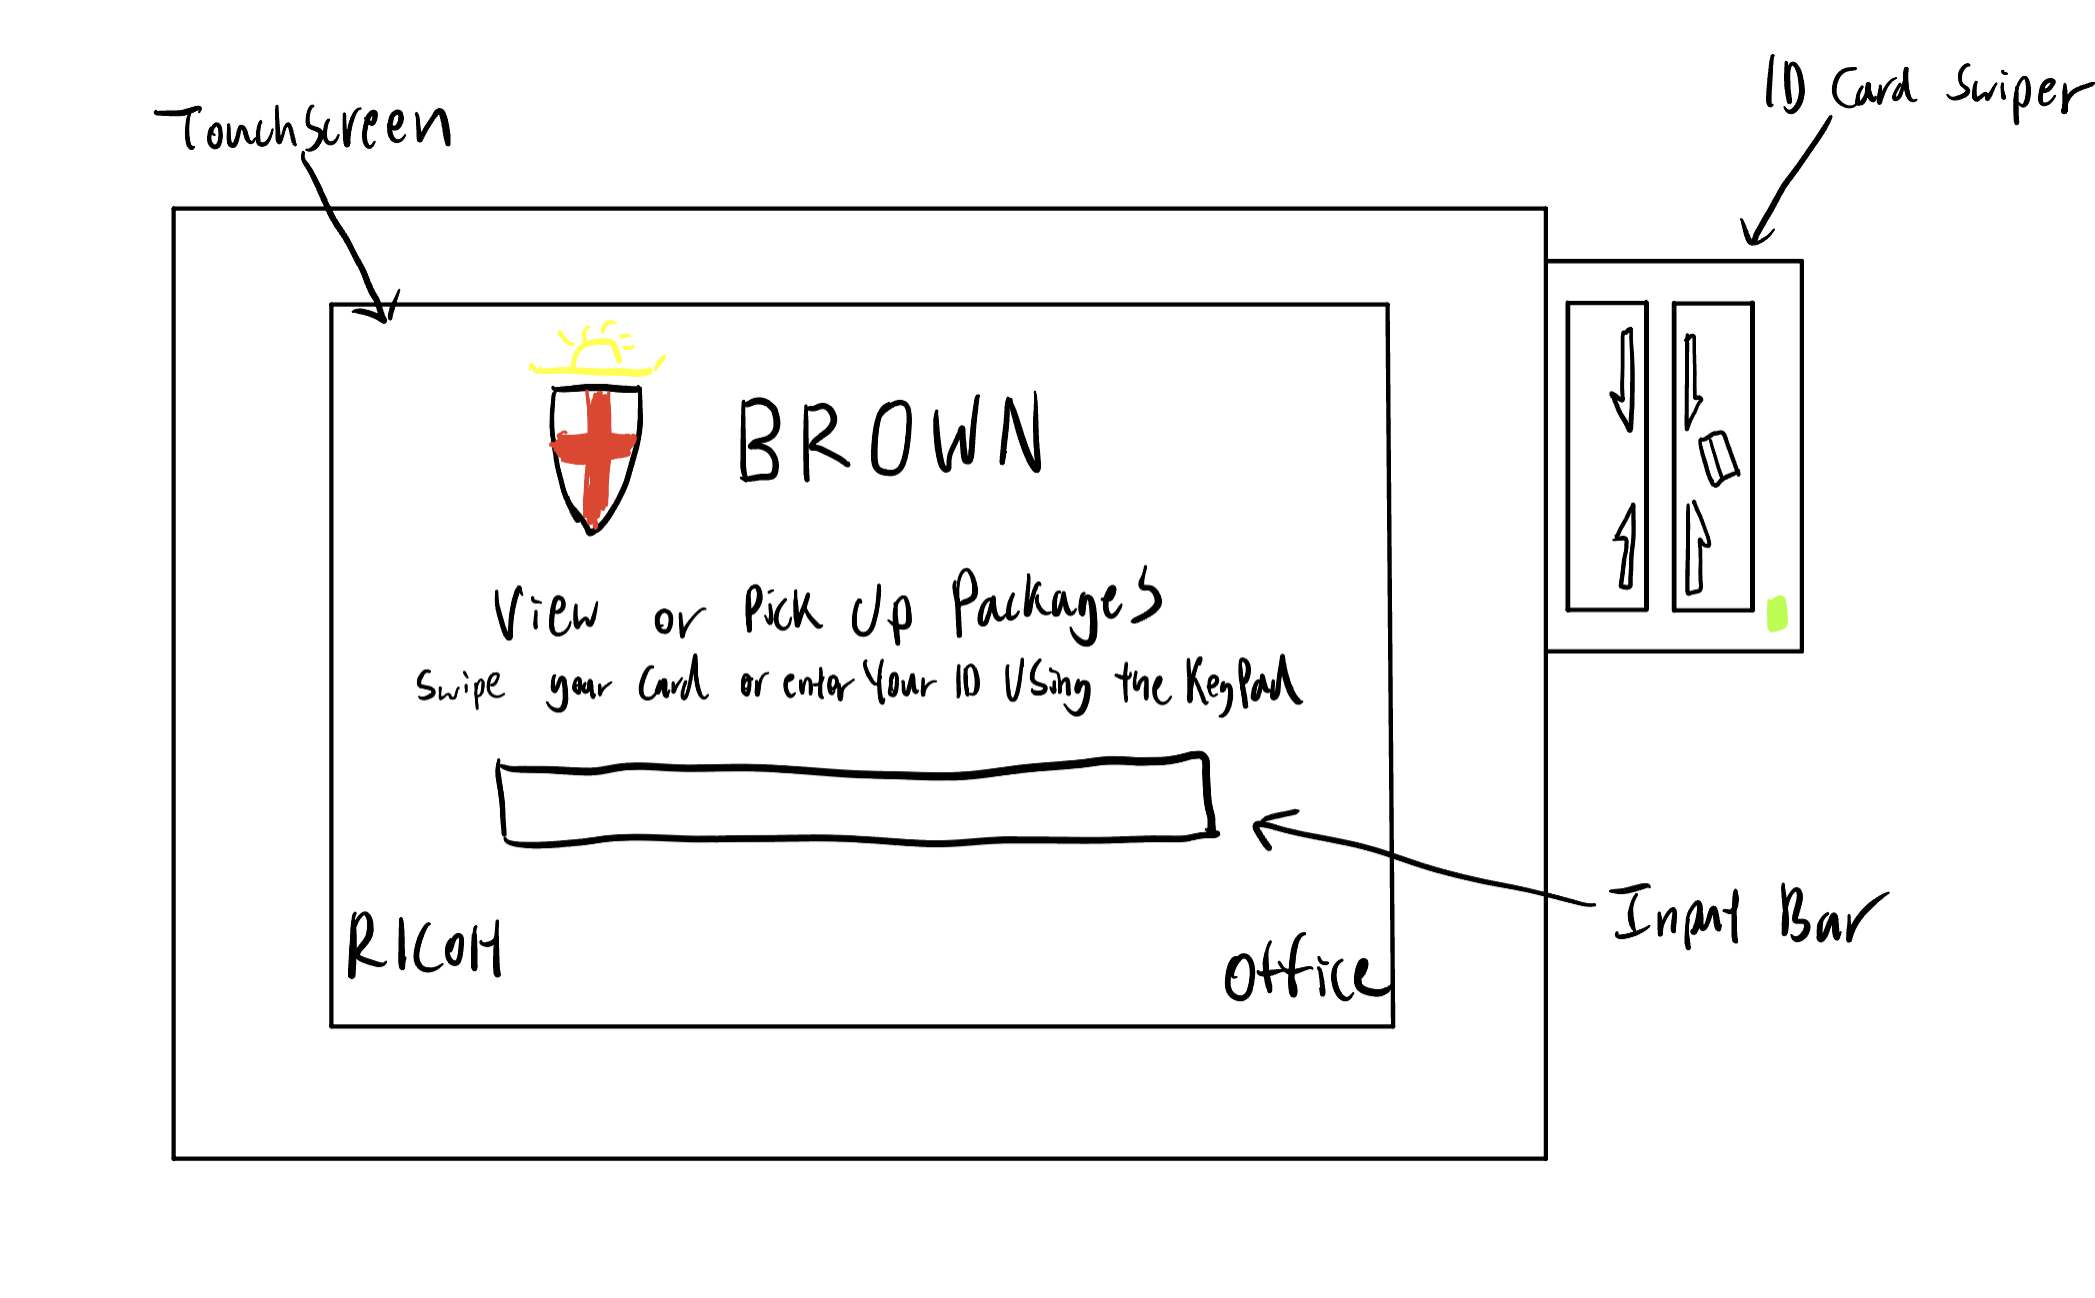 ID Card Swiper
Touchscreen
BROWN
View or Pick Up Packages
Swipe your Card or enter Your ID Using the KeyPad
Input Bar
RICOH
Office